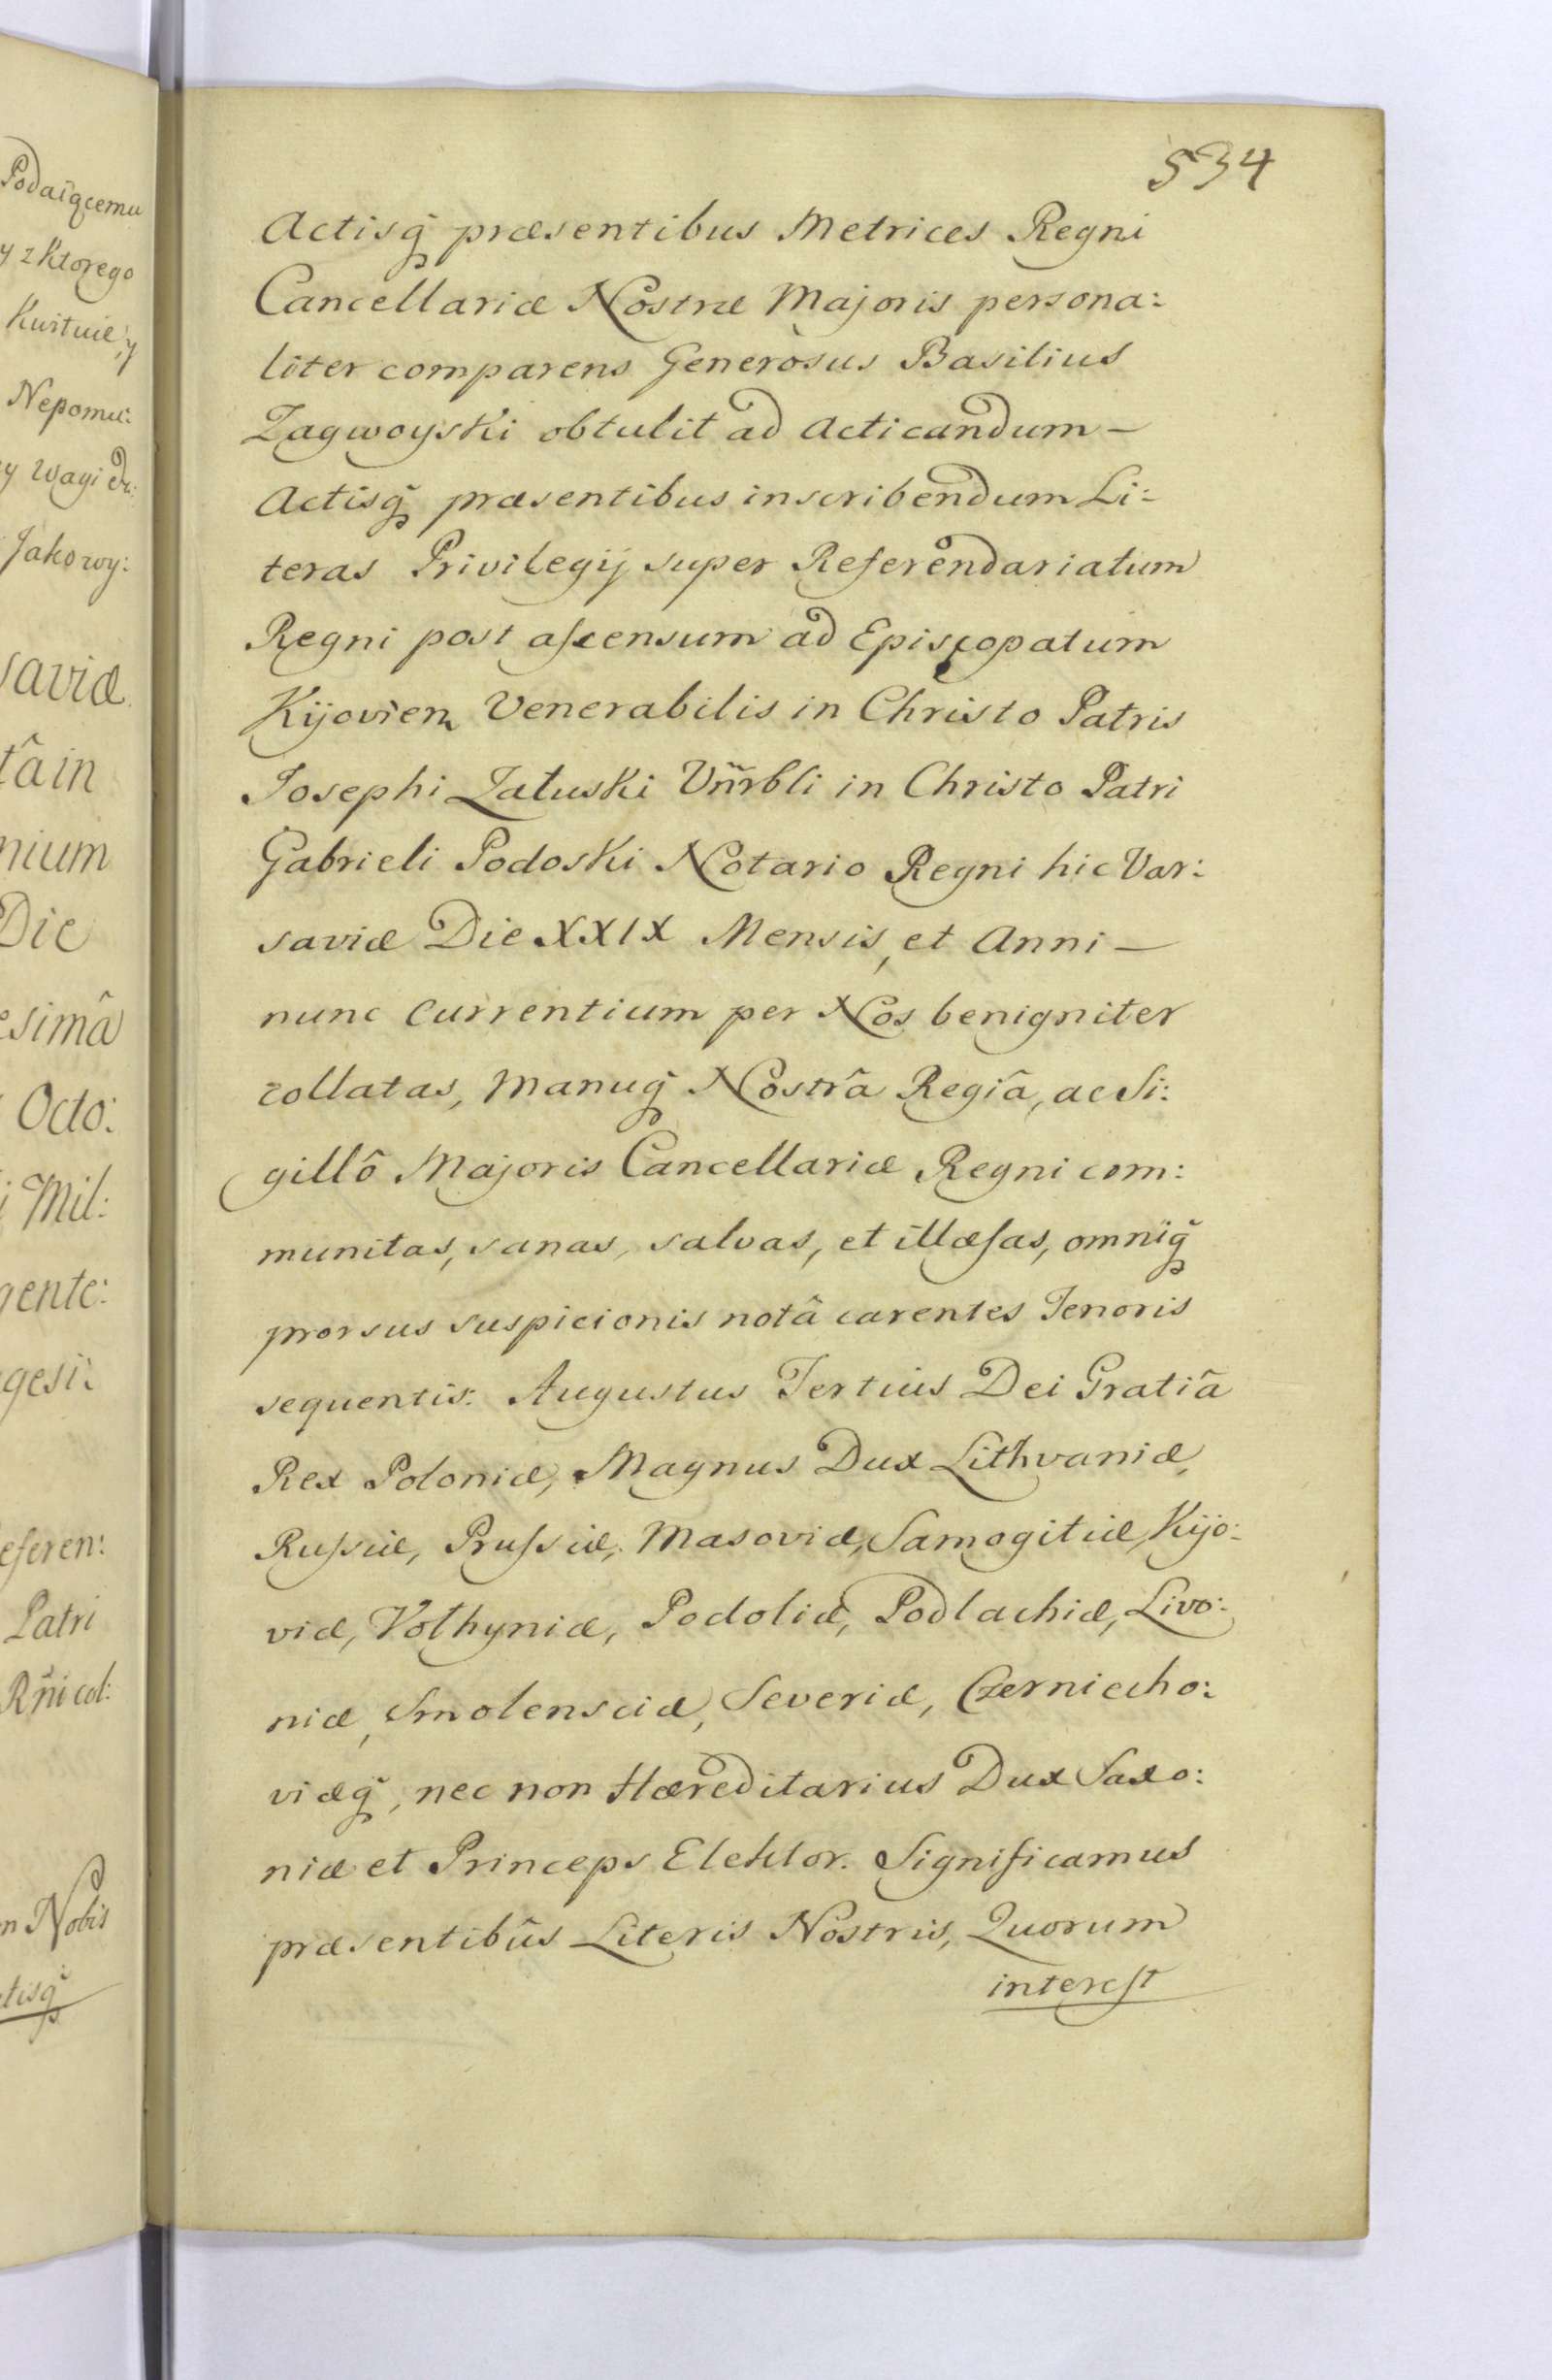 534
Actisq̃ præsentibus Metrices Regni
Cancellariæ Nostræ Majoris persona:
liter comparens Generosus Basilius
Zagwoyski obtulit ad Acticandum —
Actisq̃ præsentibus inscribendum Li:
teras Privilegij super Referendariatum
Regni post aſcensum ad Episcopatum
Kijovien Venerabilis in Christo Patris
Josephi Załuski Vñrbli in Christo Patri
Gabrieli Podoski Notario Regni hic Var:
saviæ Die XXIX Mensis, et Anni —
nunc Currentium per Nos benigniter
collatas, Manuq̃ Nostrâ Regiâ, ac Si:
gillô Majoris Cancellariæ Regni com:
munitas, sanas, salvas, et illæſas, omniq̃
prorsus suspicionis notâ carentes Tenoris
sequentis: Augustus Tertius Dei Gratiâ
Rex Poloniæ, Magnus Dux Lithvaniæ,
Ruſsiæ, Pruſsiæ, Masoviæ, Samogitiæ, Kijo:
viæ, Volhyniæ, Podoliæ, Podlachiæ, Livo:
niæ, Smolensciæ, Severiæ, Czerniecho:
viæq̃, nec non Hæreditarius Dux Saxo:
niæ et Princeps Elektor. Significamus
præsentibûs Literis Nostris, Quorum
intereſt
Podaiącemu
y z Ktorego
Kwituie, y
Nepomu:
y Wagi
Jakowy:
saviæ
tâ in
nium
Die
esimâ
Octo:
i Mil:
gente:
gesi:
eferen:
Patri
Rñi col:
n Nobis
tisq̃